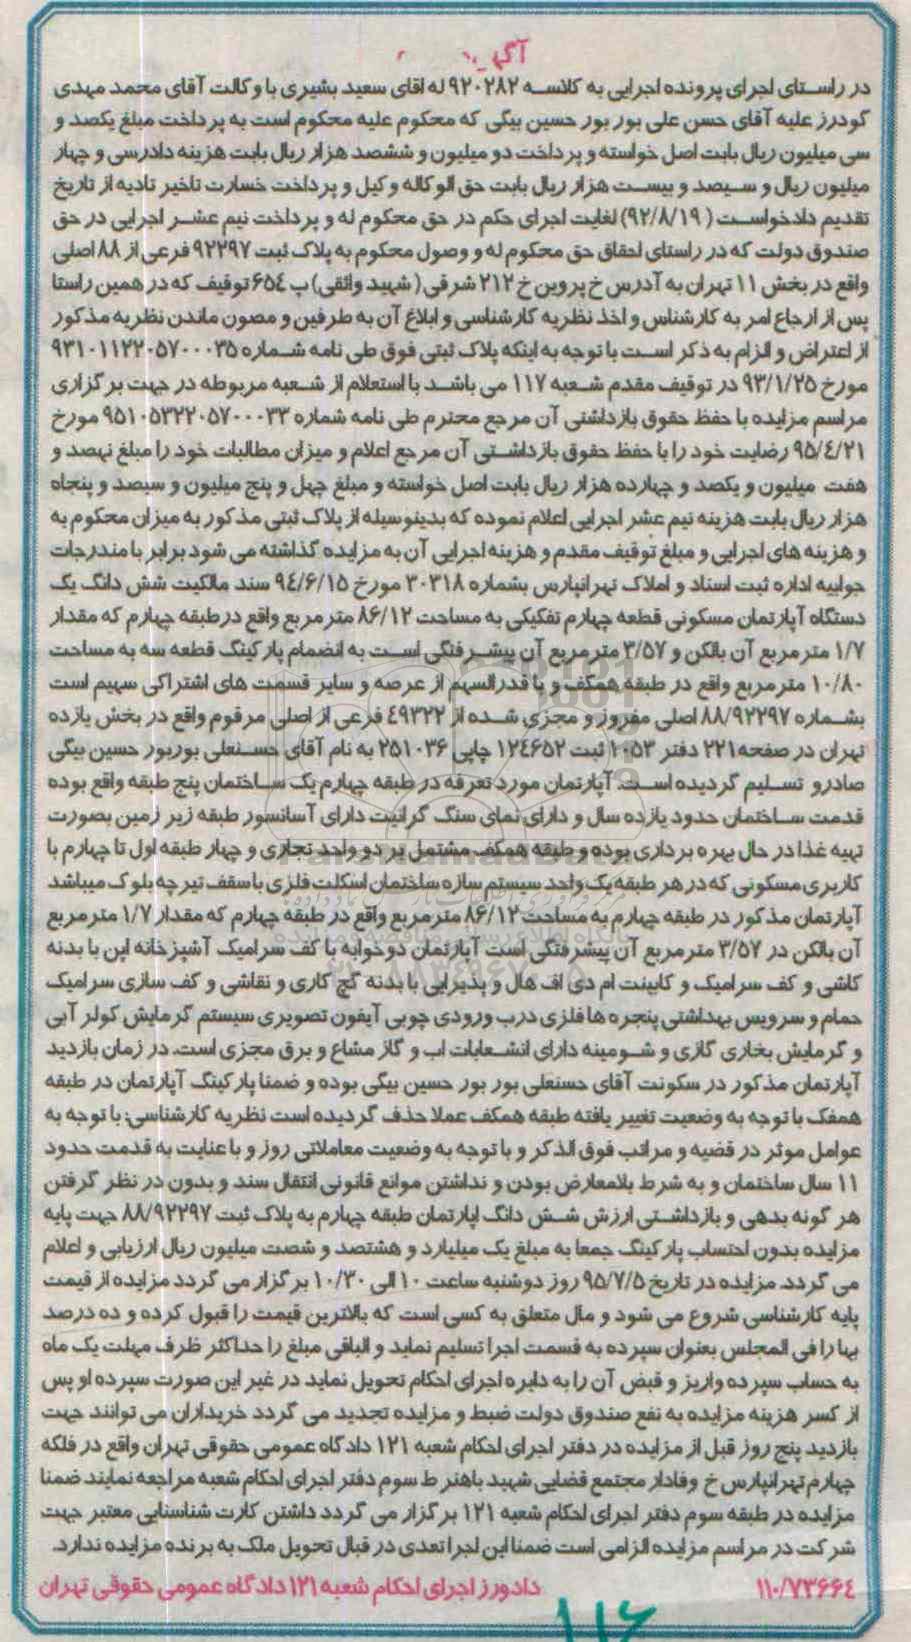 آگهی
در راستای اجرای پرونده اجرایی به کلاسه ۹۲۰۲۸۲ له اقای سعید بشیری با وکالت آقای محمد مهدی
گودرز علیه آقای حسن علی بور بور حسین بیگی که محکوم علیه محکوم است به پرداخت مبلغ یکصد و
سی میلیون ریال بابت اصل خواسته و پرداخت دو میلیون و ششصد هزار ریال بابت هزینه دادرسی و چهار
میلیون ریال و سیصد و بیست هزار ریال بابت حق الوکاله وکیل و پرداخت خسارت تاخیر تادیه از تاریخ
تقدیم دادخواست (۹۲/۸/۱۹) لغایت اجرای حکم در حق محکوم له و پرداخت نیم عشر اجرایی در حق
صندوق دولت که در راستای احقاق حق محکوم له و وصول محکوم به پلاک ثبت ۹۲۲۹۷ فرعی از ۸۸ اصلی
واقع در بخش ۱۱ تهران به آدرس خ پروین خ ۲۱۲ شرقی (شهید واثقی) پ ۶۵٤ توقیف که در همین راستا
پس از ارجاع امر به کارشناس و اخذ نظریه کارشناسی و ابلاغ آن به طرفین و مصون ماندن نظریه مذکور
از اعتراض و الزام به ذکر است با توجه به اینکه پلاک ثبتی فوق طی نامه شماره ۹۳۱۰۱۱۲۲۰۵۷۰۰۰۳۵
مورخ ۹۳/۱/۲۵ در توقیف مقدم شعبه ۱۱۷ می باشد با استعلام از شعبه مربوطه در جهت برگزاری
مراسم مزایده با حفظ حقوق بازداشتی آن مرجع محترم طی نامه شماره ۹۵۱۰۵۳۲۲۰۵۷۰۰۰۳۳ مورخ
۹۵/٤/۲۱ رضایت خود را با حفظ حقوق بازداشتی آن مرجع اعلام و میزان مطالبات خود را مبلغ نهصد و
هفت میلیون و یکصد و چهارده هزار ریال بابت اصل خواسته و مبلغ چهل و پنج میلیون و سیصد و پنجاه
هزار ریال بابت هزینه نیم عشر اجرایی اعلام نموده که بدینوسیله از پلاک ثبتی مذکور به میزان محکوم به
و هزینه های اجرایی و مبلغ توقیف مقدم و هزینه اجرایی آن به مزایده گذاشته می شود برابر با مندرجات
جوابیه اداره ثبت اسناد و املاک تهرانپارس بشماره ۳۰۳۱۸ مورخ ۹٤/۶/۱۵ سند مالکیت شش دانگ یک
دستگاه آپارتمان مسکونی قطعه چهارم تفکیکی به مساحت ۸۶/۱۲ متر مربع واقع درطبقه چهارم که مقدار
۱/۷ متر مربع آن بالکن و ۳/۵۷ متر مربع آن پیشرفتگی است به انضمام پارکینگ قطعه سه به مساحت
۱۰/۸۰ متر مربع واقع در طبقه همکف و با قدرالسهم از عرصه و سایر قسمت های اشتراکی سهیم است
بشماره ۸۸/۹۲۲۹۷ اصلی مفروز و مجزی شده از ٤۹۳۲۲ فرعی از اصلی مرقوم واقع در بخش یازده
تهران در صفحه ۲۲۱ دفتر ۱۰۵۳ ثبت ۱۲٤۶۵۲ چاپی ۲۵۱۰۳۶ به نام آقای حسنعلی بوربور حسین بیگی
صادرو تسلیم گردیده است. آپارتمان مورد تعرفه در طبقه چهارم یک ساختمان پنج طبقه واقع بوده
قدمت ساختمان حدود یازده سال و دارای نمای سنگ گرانیت دارای آسانسور طبقه زیر زمین بصورت
تهیه غذا در حال بهره برداری بوده و طبقه همکف مشتمل بر دو واحد تجاری و چهار طبقه اول تا چهارم با
کاربری مسکونی که در هر طبقه یک واحد سیستم سازه ساختمان اسکلت فلزی با سقف تیرچه بلوک میباشد
آپارتمان مذکور در طبقه چهارم به مساحت ۸۶/۱۲ متر مربع واقع در طبقه چهارم که مقدار ۱/۷ متر مربع
آن بالکن در ۳/۵۷ متر مربع آن پیشرفتگی است آپارتمان دوخوابه با کف سرامیک آشپزخانه این با بدنه
کاشی و کف سرامیک و کابینت ام دی اف هال و پذیرایی با بدنه گچ کاری و نقاشی و کف سازی سرامیک
حمام و سرویس بهداشتی پنجره ها فلزی درب ورودی چوبی آیفون تصویری سیستم گرمایش کولر آبی
و گرمایش بخاری گازی و شومینه دارای انشعابات اب و گاز مشاع و برق مجزی است. در زمان بازدید
آپارتمان مذکور در سکونت آقای حسنعلی بور بور حسین بیگی بوده و ضمنا پارکینگ آپارتمان در طبقه
همفک با توجه به وضعیت تغییر یافته طبقه همکف عملا حذف گردیده است نظریه کارشناسی: با توجه به
عوامل موثر در قضیه و مراتب فوق الذکر و با توجه به وضعیت معاملاتی روز و با عنایت به قدمت حدود
۱۱ سال ساختمان و به شرط بلامعارض بودن و نداشتن موانع قانونی انتقال سند و بدون در نظر گرفتن
هر گونه بدهی و بازداشتی ارزش شش دانگ اپارتمان طبقه چهارم به پلاک ثبت ۸۸/۹۲۲۹۷ جهت پایه
مزایده بدون احتساب پارکینگ جمعا به مبلغ یک میلیارد و هشتصد و شصت میلیون ریال ارزیابی و اعلام
می گردد. مزایده در تاریخ ۹۵/۷/۵ روز دوشنبه ساعت ۱۰ الی ۱۰/۳۰ برگزار می گردد مزایده از قیمت
پایه کارشناسی شروع می شود و مال متعلق به کسی است که بالاترین قیمت را قبول کرده و ده درصد
بها را فی المجلس بعنوان سپرده به قسمت اجرا تسلیم نماید و الباقی مبلغ را حداکثر ظرف مهلت یک ماه
به حساب سپرده واریز و قبض آن را به دایره اجرای احکام تحویل نماید در غیر این صورت سپرده او پس
از کسر هزینه مزایده به نفع صندوق دولت ضبط و مزایده تجدید می گردد خریداران می توانند جهت
بازدید پنج روز قبل از مزایده در دفتر اجرای احکام شعبه ۱۲۱ دادگاه عمومی حقوقی تهران واقع در فلکه
چهارم تهرانپارس خ وفادار مجتمع قضایی شهید باهنر ط سوم دفتر اجرای احکام شعبه مراجعه نمایند ضمنا
مزایده در طبقه سوم دفتر اجرای احکام شعبه ۱۲۱ برگزار می گردد داشتن کارت شناسایی معتبر جهت
شرکت در مراسم مزایده الزامی است ضمنا این اجرا تعدی در قبال تحویل ملک به برنده مزایده ندارد.
۱۱۰/۷۳۶۶٤ دادورز اجرای احکام شعبه ۱۲۱ دادگاه عمومی حقوقی تهران
۱۱۶